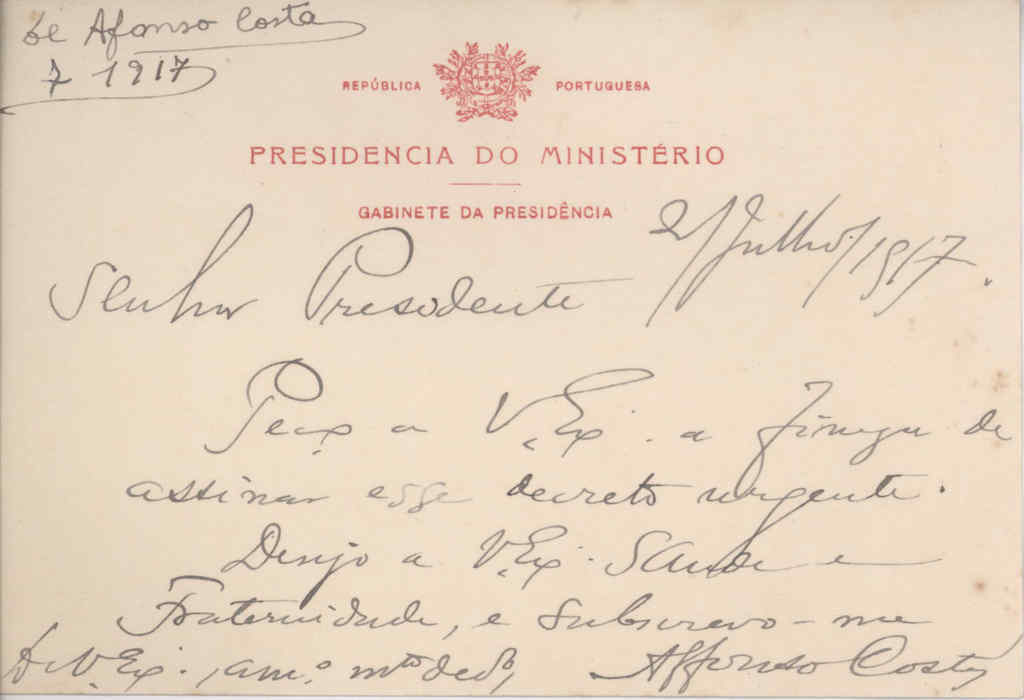 de Afonso Costa
7 1917
REPÚBLICA PORTUGUESA
PRESIDENCIA DO MINISTÉRIO
GABINETE DA PRESIDÊNCIA
2/Julho/1917.
Senhor Presidente
Peço a V. Ex. a fineza de
assinar esse decreto urgente.
Desejo a V. Ex. Saude e
Fraternidade, e subscrevo-me
De V. Ex., am.º m.to ded.º, Affonso Costa